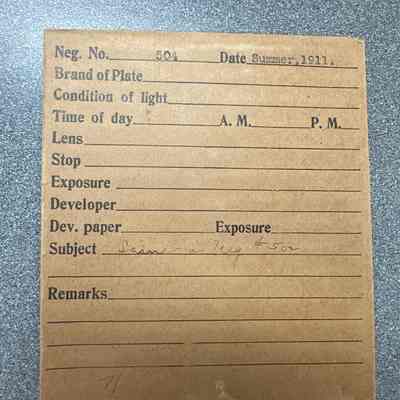 Neg. No. 504 Date Summer, 1911.
Brand of Plate
Condition of light
Time of day A. M. P. M.
Lens
Stop
Exposure
Developer
Dev. paper Exposure
Subject Same as Neg #502
Remarks